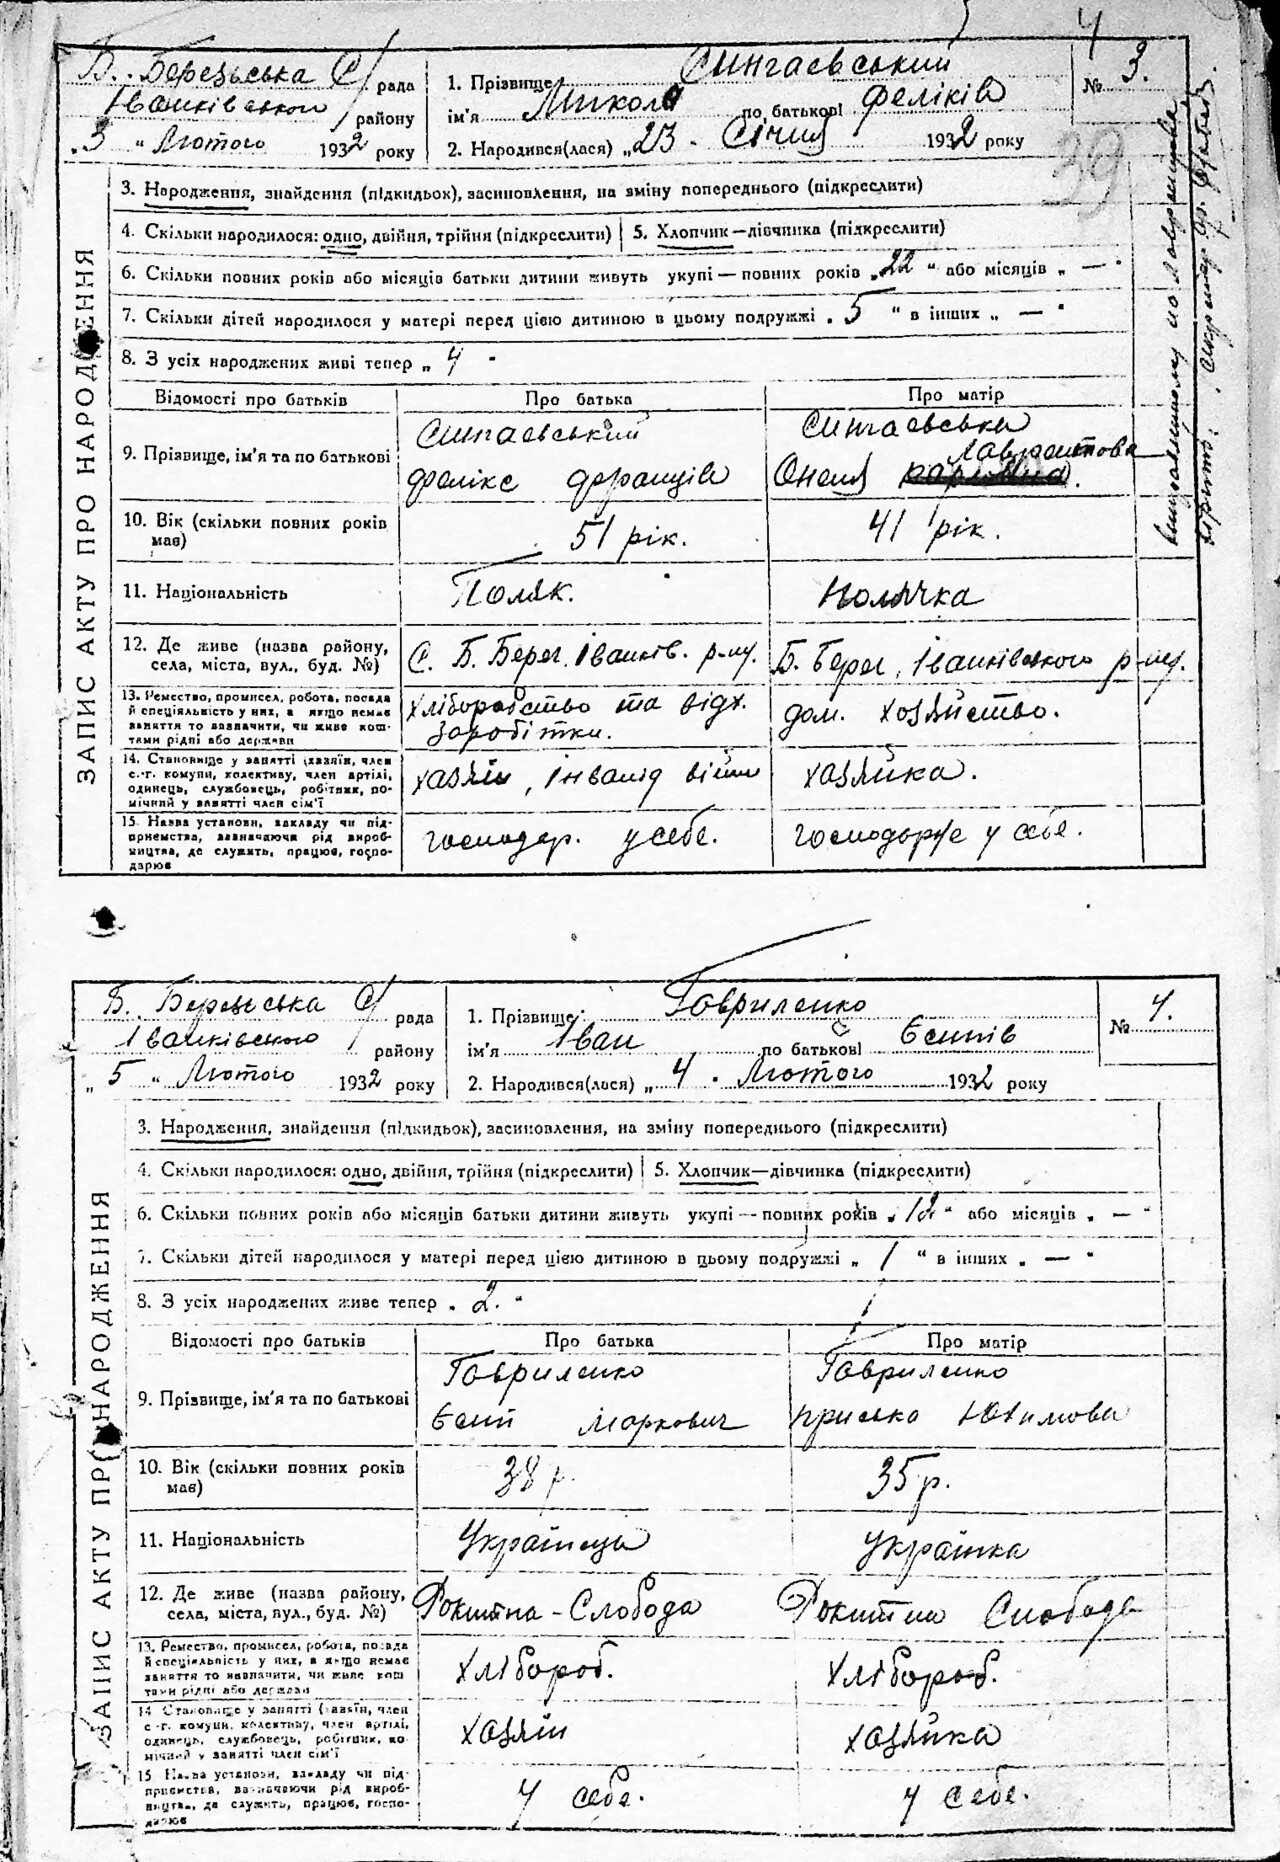 4
Б. Березьська С/рада
Іванківського району
"3" Лютого 1932 року
1. Прізвище Сингаєвський
ім'я Микола по батькові Феліків
2. Народився(лася) "23" Січня 1932 року
№ 3.
39
ЗАПИС АКТУ ПРО НАРОДЖЕННЯ
3. Народження, знайдення (підкидьок), засиновлення, на зміну попереднього (підкреслити)
4. Скільки народилося: одно, двійня, трійня (підкреслити) 5. Хлопчик—дівчинка (підкреслити)
6. Скільки повних років або місяців батьки дитини живуть укупі — повних років „22" або місяців „ — "
7. Скільки дітей народилося у матері перед цією дитиною в цьому подружжі „5" в інших „ — "
8. З усіх народжених живі тепер „4"
Відомості про батьків Про батька Про матір
9. Прізвище, ім'я та по батькові
Сингаєвський
Фелікс Франців
Сингаєвська
Лаврентова
Онеля
10. Вік (скільки повних років має)
51 рік.
41 рік.
11. Національність
Поляк.
полячка
12. Де живе (назва району,
села, міста, вул., буд. №)
С. Б. Берег. Іванків. р-ну.
Б. Берег, Іванківського р-ну.
13. Ремество, промисел, робота, посада
й спеціяльність у них, а якщо немає
заняття то зазначити, чи живе кош-
тами рідні або держави
Хліборобство та відх.
заробітки.
дом. хозяйство.
14. Становище у занятті (хазяїн, член
с.-г. комуни, колективу, член артілі,
одинець, службовець, робітник, по-
мічний у занятті член сім'ї
хазяїн, інвалід війни
хазяйка.
15. Назва установи, закладу чи під-
приємства, зазначаючи рід вироб-
ництва, де служить, працює, госпо-
дарює
господар. у себе.
господарює у себе.
Б. Березьська С/рада
Іванківського району
„5" Лютого 1932 року
1. Прізвище: Гавриленко
ім'я Іван по батькові Єсипів
2. Народився(лася) „4" Лютого 1932 року
№ 4.
ЗАПИС АКТУ ПРО НАРОДЖЕННЯ
3. Народження, знайдення (підкидьок), засиновлення, на зміну попереднього (підкреслити)
4. Скільки народилося: одно, двійня, трійня (підкреслити) 5. Хлопчик—дівчинка (підкреслити)
6. Скільки повних років або місяців батьки дитини живуть укупі — повних років „12" або місяців „ — "
7. Скільки дітей народилося у матері перед цією дитиною в цьому подружжі „1" в інших „ — "
8. З усіх народжених живе тепер „2."
Відомості про батьків Про батька Про матір
9. Прізвище, ім'я та по батькові
Гавриленко
Єсип Маркович
Гавриленко
Приська Юхимова
10. Вік (скільки повних років має)
38 р.
35 р.
11. Національність
Українець
Українка
12. Де живе (назва району,
села, міста, вул., буд. №)
Рокитна-Слобода
Рокитна Слобода
13. Ремество, промисел, робота, посада
й спеціяльність у них, а якщо немає
заняття то зазначити, чи живе кош
тами рідні або держави
Хлібороб.
Хлібороб.
14 Становище у занятті (хазяїн, член
с -г. комуни, колективу, член артілі,
одинець, службовець, робітник, по
мічний у занятті член сім'ї
хазяїн
хазяйка
15 Назва установи, закладу чи під-
приємства, зазначаючи рід вироб-
ництва, де служить, працює, госпо-
дарює
у себе.
у себе.